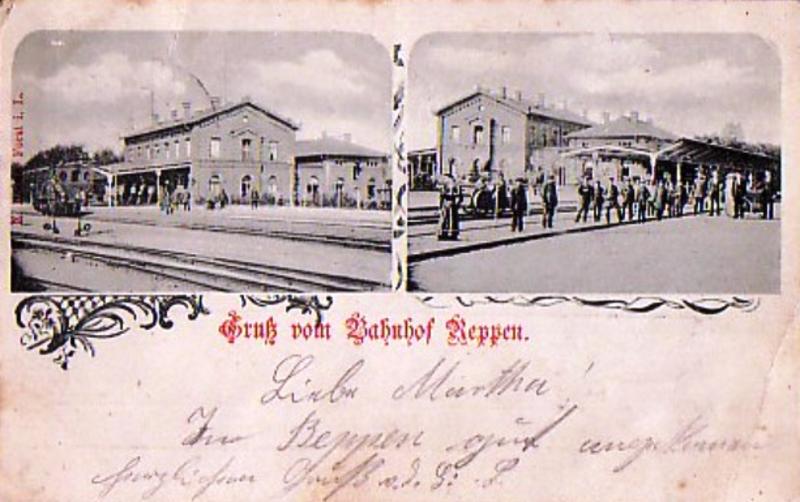 Forst i. L.
Gruß vom Bahnhof Reppen.
Liebe Martha!
In Reppen gut angekommen
herzlichen Gruß a. d.